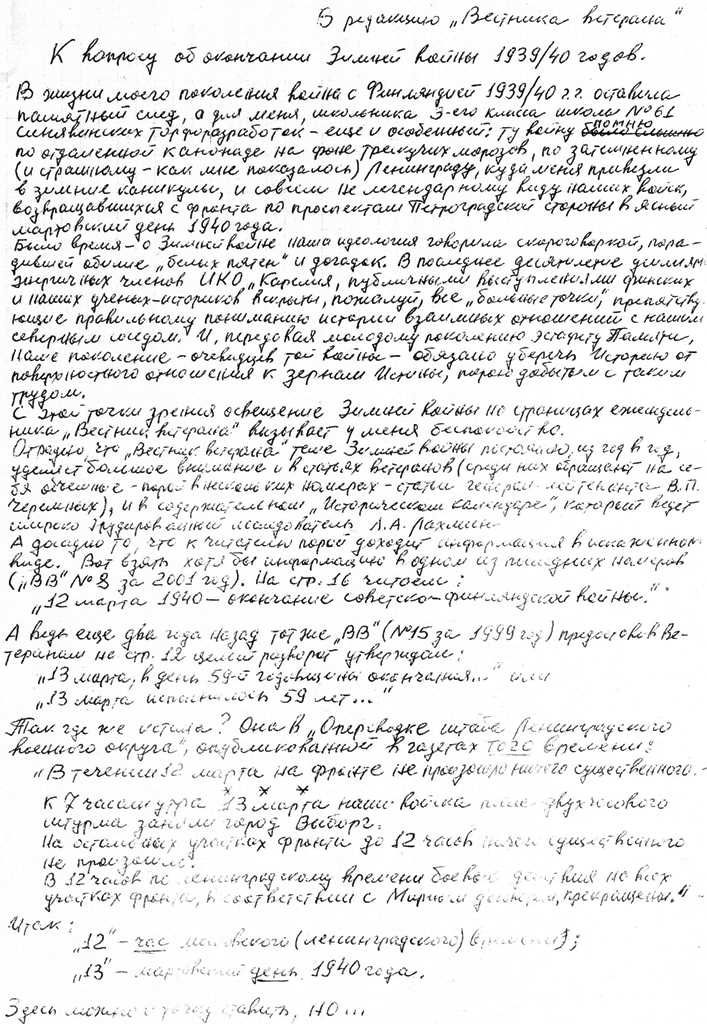 В редакцию „Вестника ветерана"
К вопросу об окончании Зимней войны 1939/40 годов.
В жизни моего поколения война с Финляндией 1939/40 г.г. оставила
памятный след, а для меня, школьника 3-его класса школы № 61
Синявинских торфоразработок – еще и особенный: ту войну помню
по отдаленной канонаде на фоне трескучих морозов, по затемненному
(и страшному – как мне показалось) Ленинграду, куда меня привезли
в зимние каникулы, и совсем не легендарному виду наших войск,
возвращавшихся с фронта по проспектам Петроградской стороны в ясный
мартовский день 1940 года.
Было время – о Зимней войне наша идеология говорила скороговоркой, поро-
дившей обилие „белых пятен" и догадок. В последнее десятилетие усилиями
энергичных членов ИКО „Карелия, публичными выступлениями финских
и наших ученых-историков вскрыты, пожалуй, все „больные точки", препятству-
ющие правильному пониманию истории взаимных отношений с нашим
северным соседом. И, передавая молодому поколению эстафету Памяти,
наше поколение – очевидцев той войны – обязано уберечь Историю от
поверхностного отношения к зернам Истины, порою добытым с таким
трудом.
С этой точки зрения освещение Зимней войны на страницах еженедель-
ника „Вестник ветерана" вызывает у меня беспокойство.
Отрадно, что „Вестник ветерана" теме Зимней войны постоянно, из год в год,
уделяет большое внимание и в статьях ветеранов (среди них обращают на се-
бя объемные – порой в нескольких номерах – статьи генерал-лейтенанта В.П.
Черемных), и в содержательном „Историческом календаре", который ведет
широко эрудированный исследователь Л.А. Лахмин
А досадно то, что к читателю порой доходит информация в искаженном
виде. Вот взять хотя бы информацию в одном из последних номеров
(„ВВ" № 8 за 2001 год). На стр. 16 читаем:
„12 марта 1940 – окончание советско-финляндской войны."
А ведь еще два года назад тот же „ВВ" (№15 за 1999 год) предоставив Ве-
теранам на стр. 12 целый разворот утверждал:
„13 марта, в день 59-й годовщины окончания..." или
„13 марта исполнилось 59 лет..."
Так где же истина? Она в „Оперсводке штаба Ленинградского
военного округа", опубликованной в газетах того времени:
„В течении 12 марта на фронте не произошло ничего существенного. –
К 7 часам утра 13 марта наши войска после двухчасового
штурма заняли город Выборг.
На остальных участках фронта до 12 часов ничего существенного
не произошло.
В 12 часов по ленинградскому времени боевые действия на всех
участках фронта, в соответствии с Мирным договором, прекращены."
Итак:
„12" – час московского (ленинградского) времени);
„13" – мартовский день 1940 года.
Здесь можно и точку ставить, но...